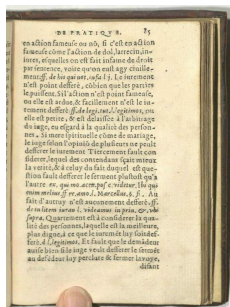 DE PRATIQVE. 85
en action fameuse ou nõ, si c'est en action
fameuse cõme l'action de dol, larrecin, in-
iures, esquelles on est fait infame de droit
par sentence, voire qu'on eust agy ciuille-
ment: ff. de his qui not. infa. l. j. Le iurement
n'est point defferé, cõbien que les parties
le peussent. S'il n'action n'est point fameuse,
ou elle est ardue, & facillement n'est le iu-
rement defferé ff. de legi. tut. l. legitimos, ou
elle est petite, & est delaissee à l'arbitrage
du iuge, eu egard à la qualité des person-
nes. Si mere spirituelle cõme de mariage,
le iuge selon l'opiniõ de plusieurs ne peult
defferer le iurement Tiercement fault con
siderer, lequel des contendans sçait mieux
la verité, & à celuy du fait duquel est que-
stion fault defferer le serment plustost qu'à
l'autre
fait d'autruy n'est aucunement defferé. ff.
supra. Quartement est à considerer la qua-
lité des personnes, laquelle est la meilleure,
plus digne, à ce que le iuremẽt luy soit def-
feré, d. l. legitimos. Et fault que le demãdeur
auise bien si le iuge veult defferer le sermẽt
au defẽdeur luy perclure & fermer la voye,
disant